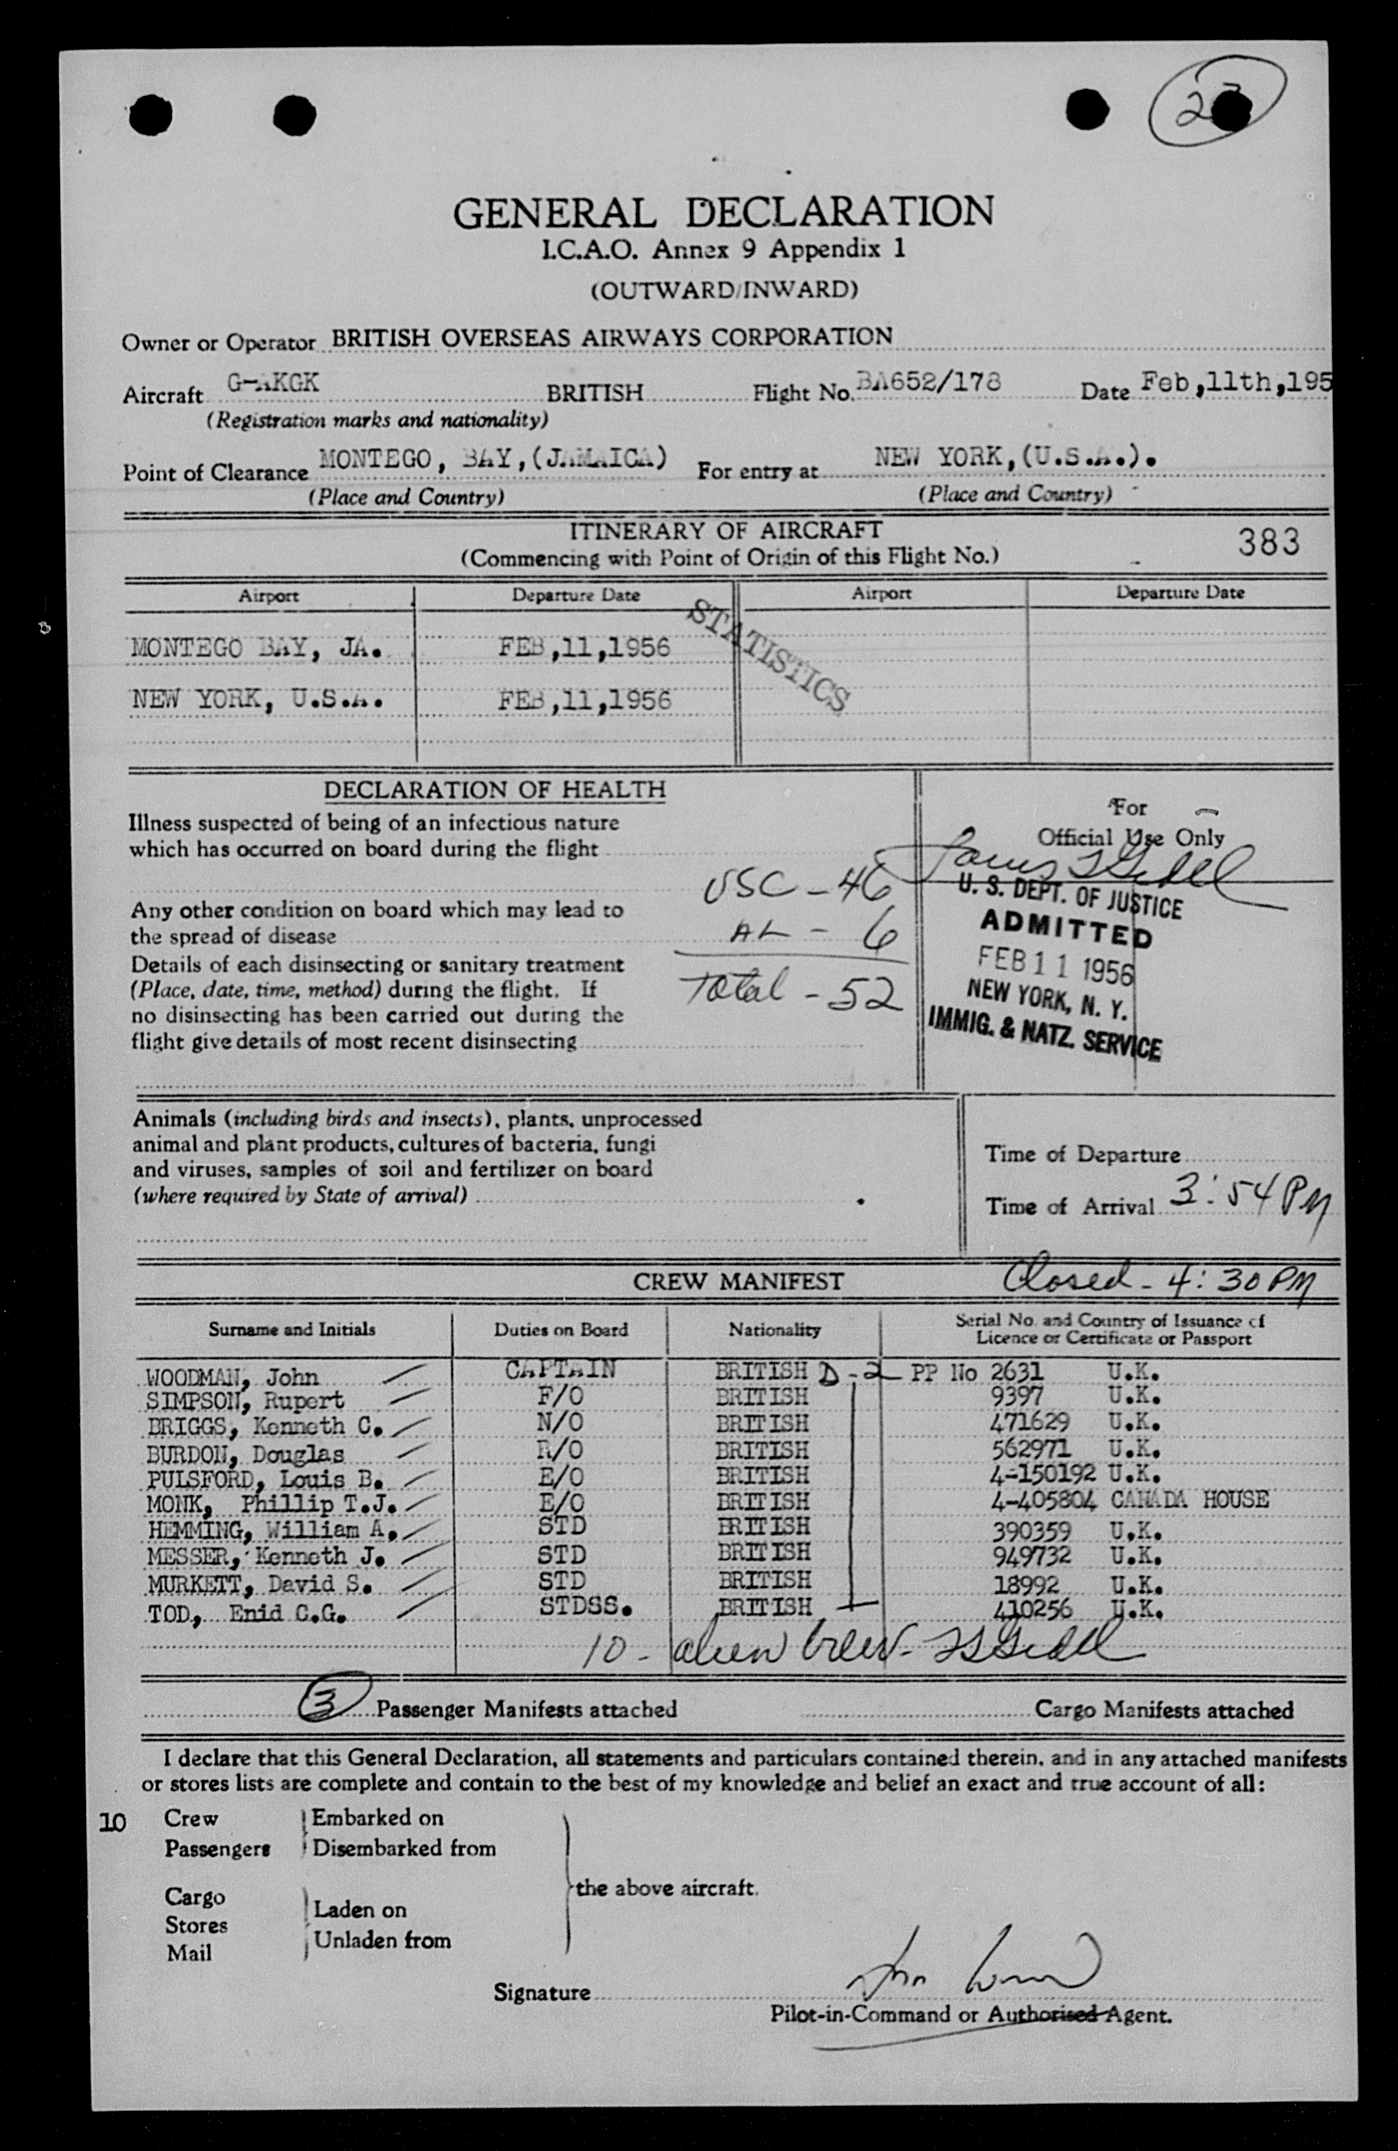 23
GENERAL DECLARATION
I.C.A.O. Annex 9 Appendix 1
(OUTWARD/INWARD)
Owner or Operator BRITISH OVERSEAS AIRWAYS CORPORATION
Aircraft G-AKGK BRITISH Flight No. BA652/178 Date Feb,11th,195
(Registration marks and nationality)
Point of Clearance MONTEGO, BAY,(JAMAICA) For entry at NEW YORK,(U.S.A.).
(Place and Country) (Place and Country)
ITINERARY OF AIRCRAFT
(Commencing with Point of Origin of this Flight No.) 383
Airport Departure Date Airport Departure Date
MONTEGO BAY, JA. FEB,11,1956
STATISTICS
NEW YORK, U.S.A. FEB,11,1956
DECLARATION OF HEALTH
Illness suspected of being of an infectious nature
which has occurred on board during the flight
Any other condition on board which may lead to
the spread of disease
Details of each disinsecting or sanitary treatment
(Place, date, time, method) during the flight. If
no disinsecting has been carried out during the
flight give details of most recent disinsecting
USC - 46
AL - 6
Total - 52
For
Official Use Only
U. S. DEPT. OF JUSTICE
ADMITTED
FEB 11 1956
NEW YORK, N. Y.
IMMIG. & NATZ. SERVICE
Animals (including birds and insects), plants, unprocessed
animal and plant products, cultures of bacteria, fungi
and viruses, samples of soil and fertilizer on board
(where required by State of arrival)
Time of Departure
Time of Arrival 3:54 PM
CREW MANIFEST Closed - 4:30 PM
Surname and Initials Duties on Board Nationality Serial No. and Country of Issuance of
Licence or Certificate or Passport
WOODMAN, John CAPTAIN BRITISH D-2 PP No 2631 U.K.
SIMPSON, Rupert F/O BRITISH 9397 U.K.
BRIGGS, Kenneth C. N/O BRITISH 471629 U.K.
BURDON, Douglas R/O BRITISH 562971 U.K.
PULSFORD, Louis B. E/O BRITISH 4-150192 U.K.
MONK, Phillip T.J. E/O BRITISH 4-405804 CANADA HOUSE
HEMMING, William A. STD BRITISH 390359 U.K.
MESSER, Kenneth J. STD BRITISH 949732 U.K.
MURKETT, David S. STD BRITISH 18992 U.K.
TOD, Enid C.G. STDSS. BRITISH 410256 U.K.
10 - alien crew -
3 Passenger Manifests attached Cargo Manifests attached
I declare that this General Declaration, all statements and particulars contained therein, and in any attached manifests
or stores lists are complete and contain to the best of my knowledge and belief an exact and true account of all:
10 Crew Embarked on
Passengers Disembarked from
the above aircraft.
Cargo
Stores
Mail
Laden on
Unladen from
Signature
Pilot-in-Command or Authorised Agent.